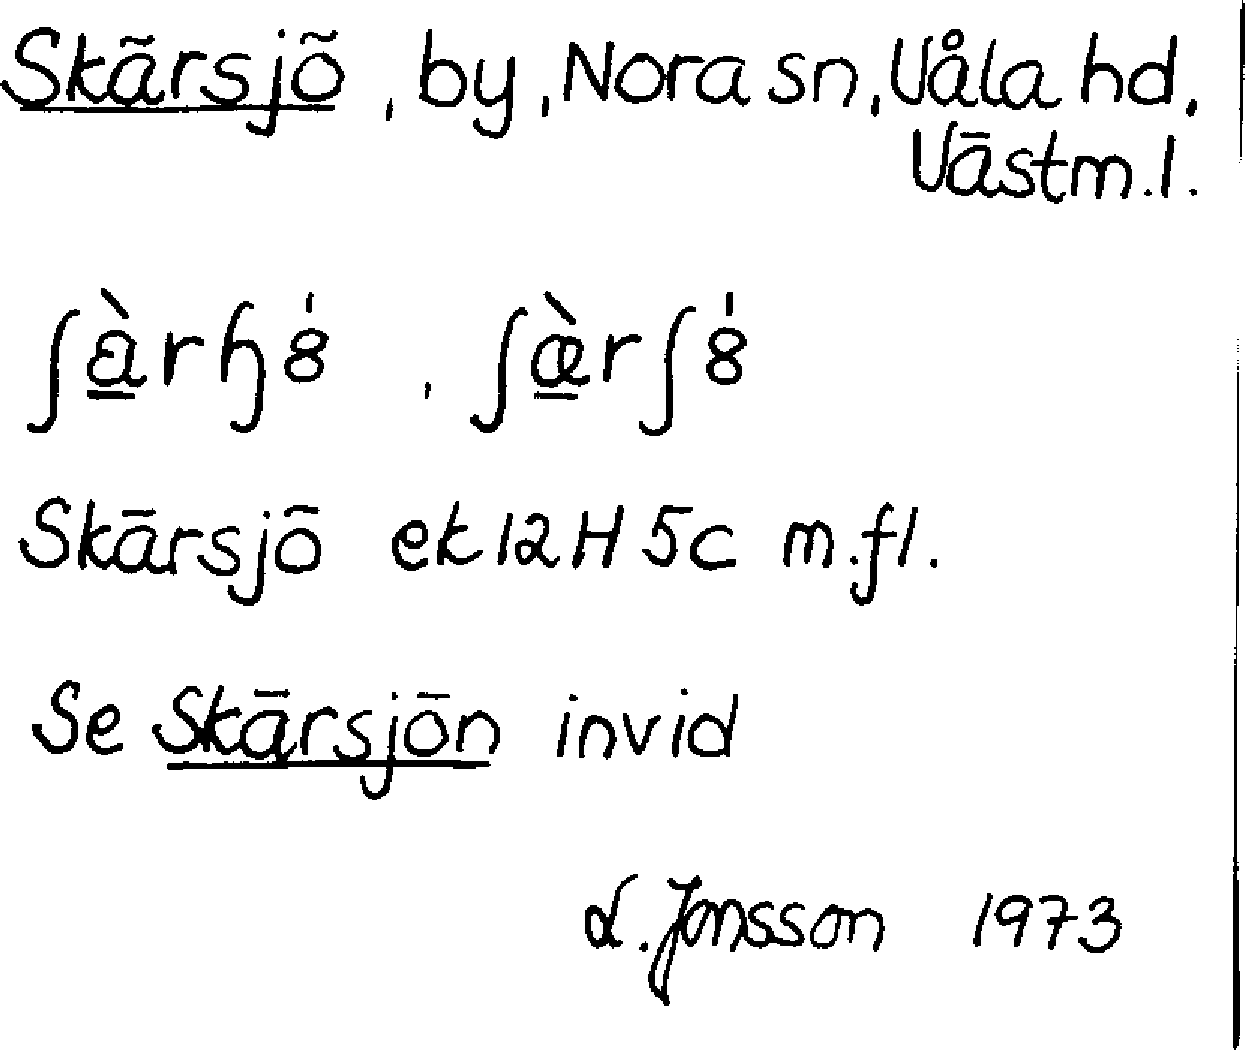 Skärsjö, by, Nora sn, Våla hd,
Västm. l.
ʃæ̀rɧ8́, ʃæ̀rʃ8́
Skärsjö ek 12H 5c m.fl.
Se Skärsjön invid
L. Jonsson 1973